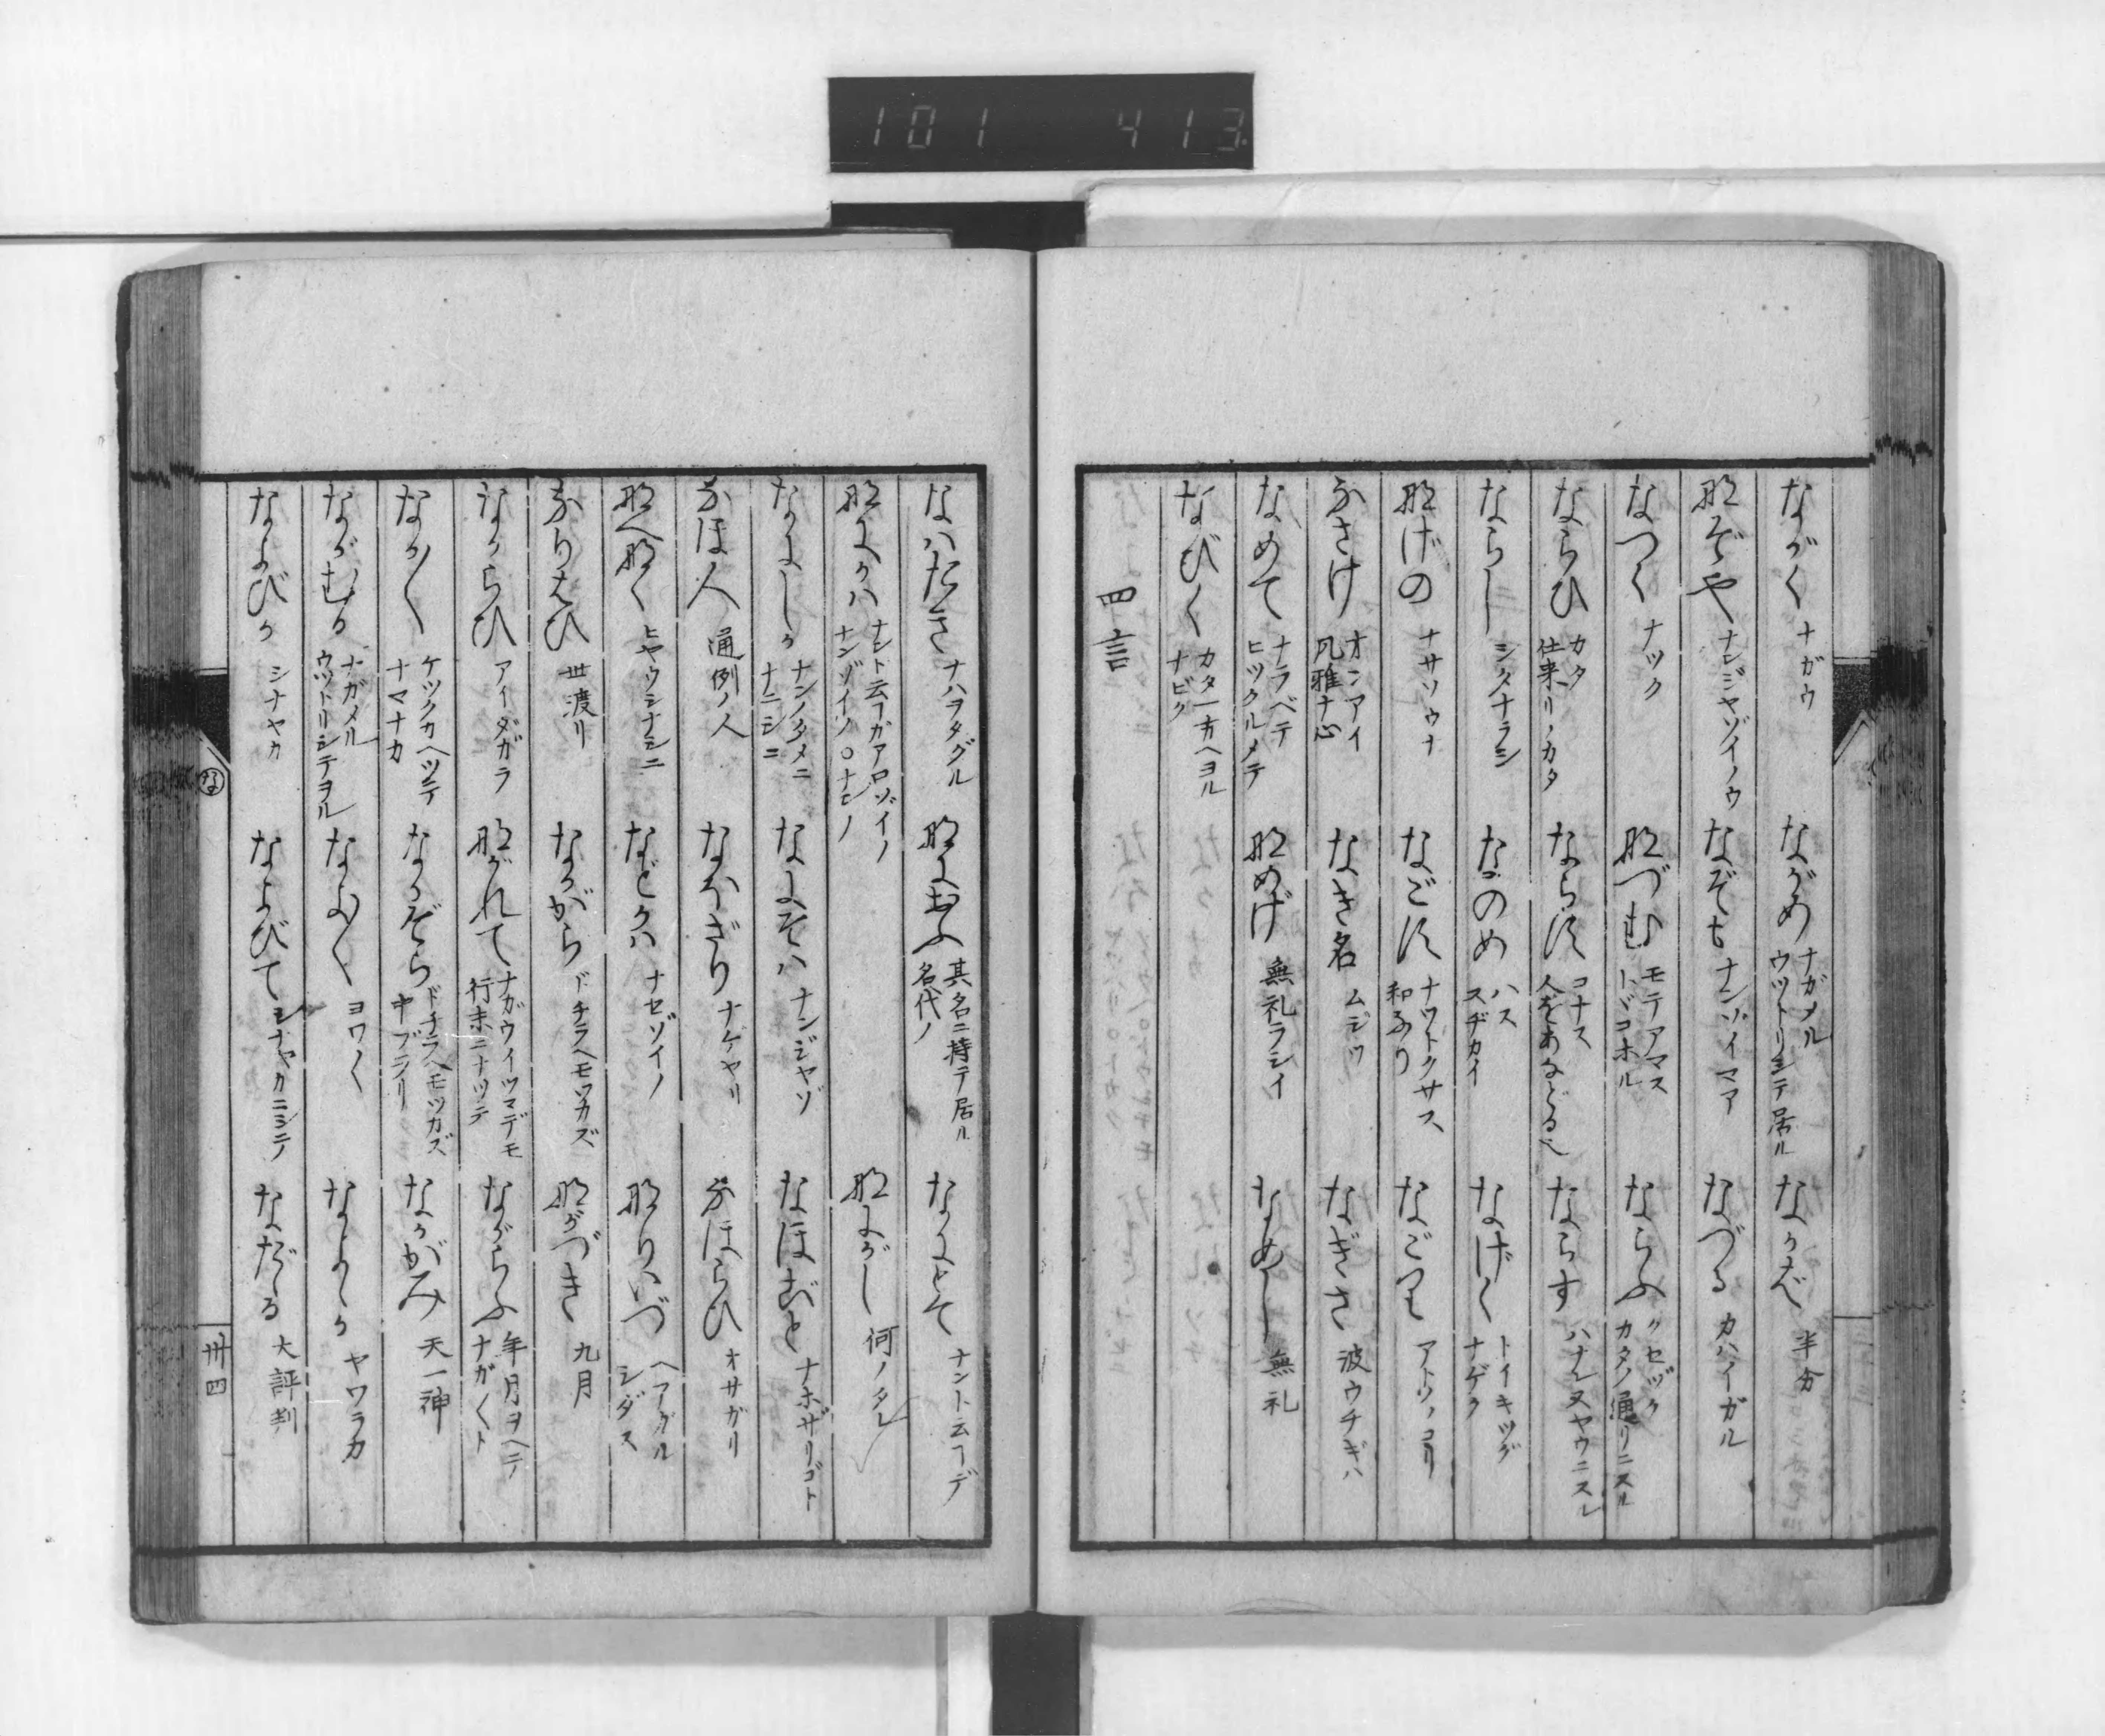 101 413
ながく ナガウ
ながめ ナガメル ウツトリシテ居ル
なかば 半分
なぞや ナンジヤゾイノウ
なぞも ナンゾイマア
なづる カハイガル
なつく ナツク
なづむ モテアマス トドコホル
ならふ クセヅク カタノ通リニスル
ならひ カタ 仕来リノカタ
ならす コナス 人をあなどる也
ならす ハナル又ヤウニスル
ならし シタナラシ
なのめ ハス スヂカイ
なげく トイキツグ ナゲク
なげの ナサソウナ
なごす ナツトクサス 和ナリ
なごり アトノノコリ
なさけ オンアイ 風雅ナ心
なき名 ムジツ
なぎさ 波ウチギハ
なめて ナラベテ ヒツクルメテ
なめげ 無礼ラシイ
なめし 無礼
なびく カタ一方ヘヨル ナビク
四言
なハたき ナハヲタグル
なにおふ 其名ニ持テ居ル 名代ノ
なにとて ナント云フデ
なにかハ ナント云フカアロゾイノ ナンゾイソ○ナンノ
なにがし 何ノタレ
なにしか ナンノタメニ ナニシニ
なにぞハ ナンジヤゾ
なほざと ナホザリゴト
なほ人 通例ノ人
なほぎり ナゲヤリ
なほらひ オサガリ
なへなく ヒヤウシナシニ
などかハ ナセゾイノ
なりいづ ヘアグル シダス
なりはひ 世渡リ
なかがら ドチラヘモツカズ
ながづき 九月
なからひ アイダガラ
ながれて ナガウイツマデモ 行末ニナツテ
ながらふ 年月ヲヘテ ナガ〱ト
なか〱 ケツクカヘツテ ナマナカ
なかぞら ドチラヘモツカズ 中ブラリ
なかがみ 天一神
ながむる ナガメル ウツトリシテヲル
なよ〱 ヨワ〱
なよらか ヤワラカ
なよびか シナヤカ
なよびて シナヤカニシテ
なだたる 大評判
な
卅四